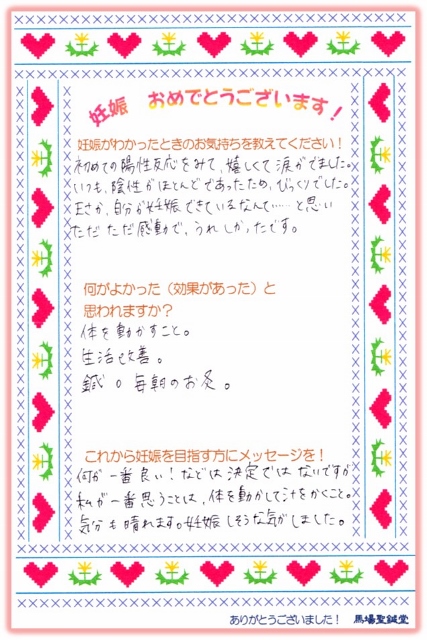 妊娠 おめでとうございます!
妊娠がわかったときのお気持ちを教えてください!
初めての陽性反応をみて、嬉しくて涙がでました。
いつも、陰性がほとんどであったため、びっくりでした。
まさか、自分が妊娠できているなんて……と思い
ただただ感動で、うれしかったです。
何がよかった(効果があった)と
思われますか?
体を動かすこと。
生活改善。
鍼。毎朝のお灸。
これから妊娠を目指す方にメッセージを!
何が一番良い!などは決定ではないですが
私が一番思うことは、体を動かして汁をかくこと。
気分も晴れます。妊娠しそうな気がしました。
ありがとうございました! 馬場聖鍼堂